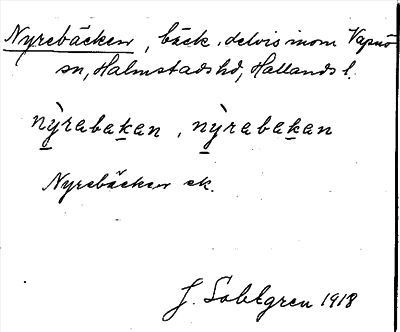 Nyrebäcken, bäck, delvis inom Vapnö
sn, Halmstads hd, Hallands l.
nẏ̀rabakan, nẏ̀rabakan
Nyrebäcken ek.
J. Sahlgren 1918